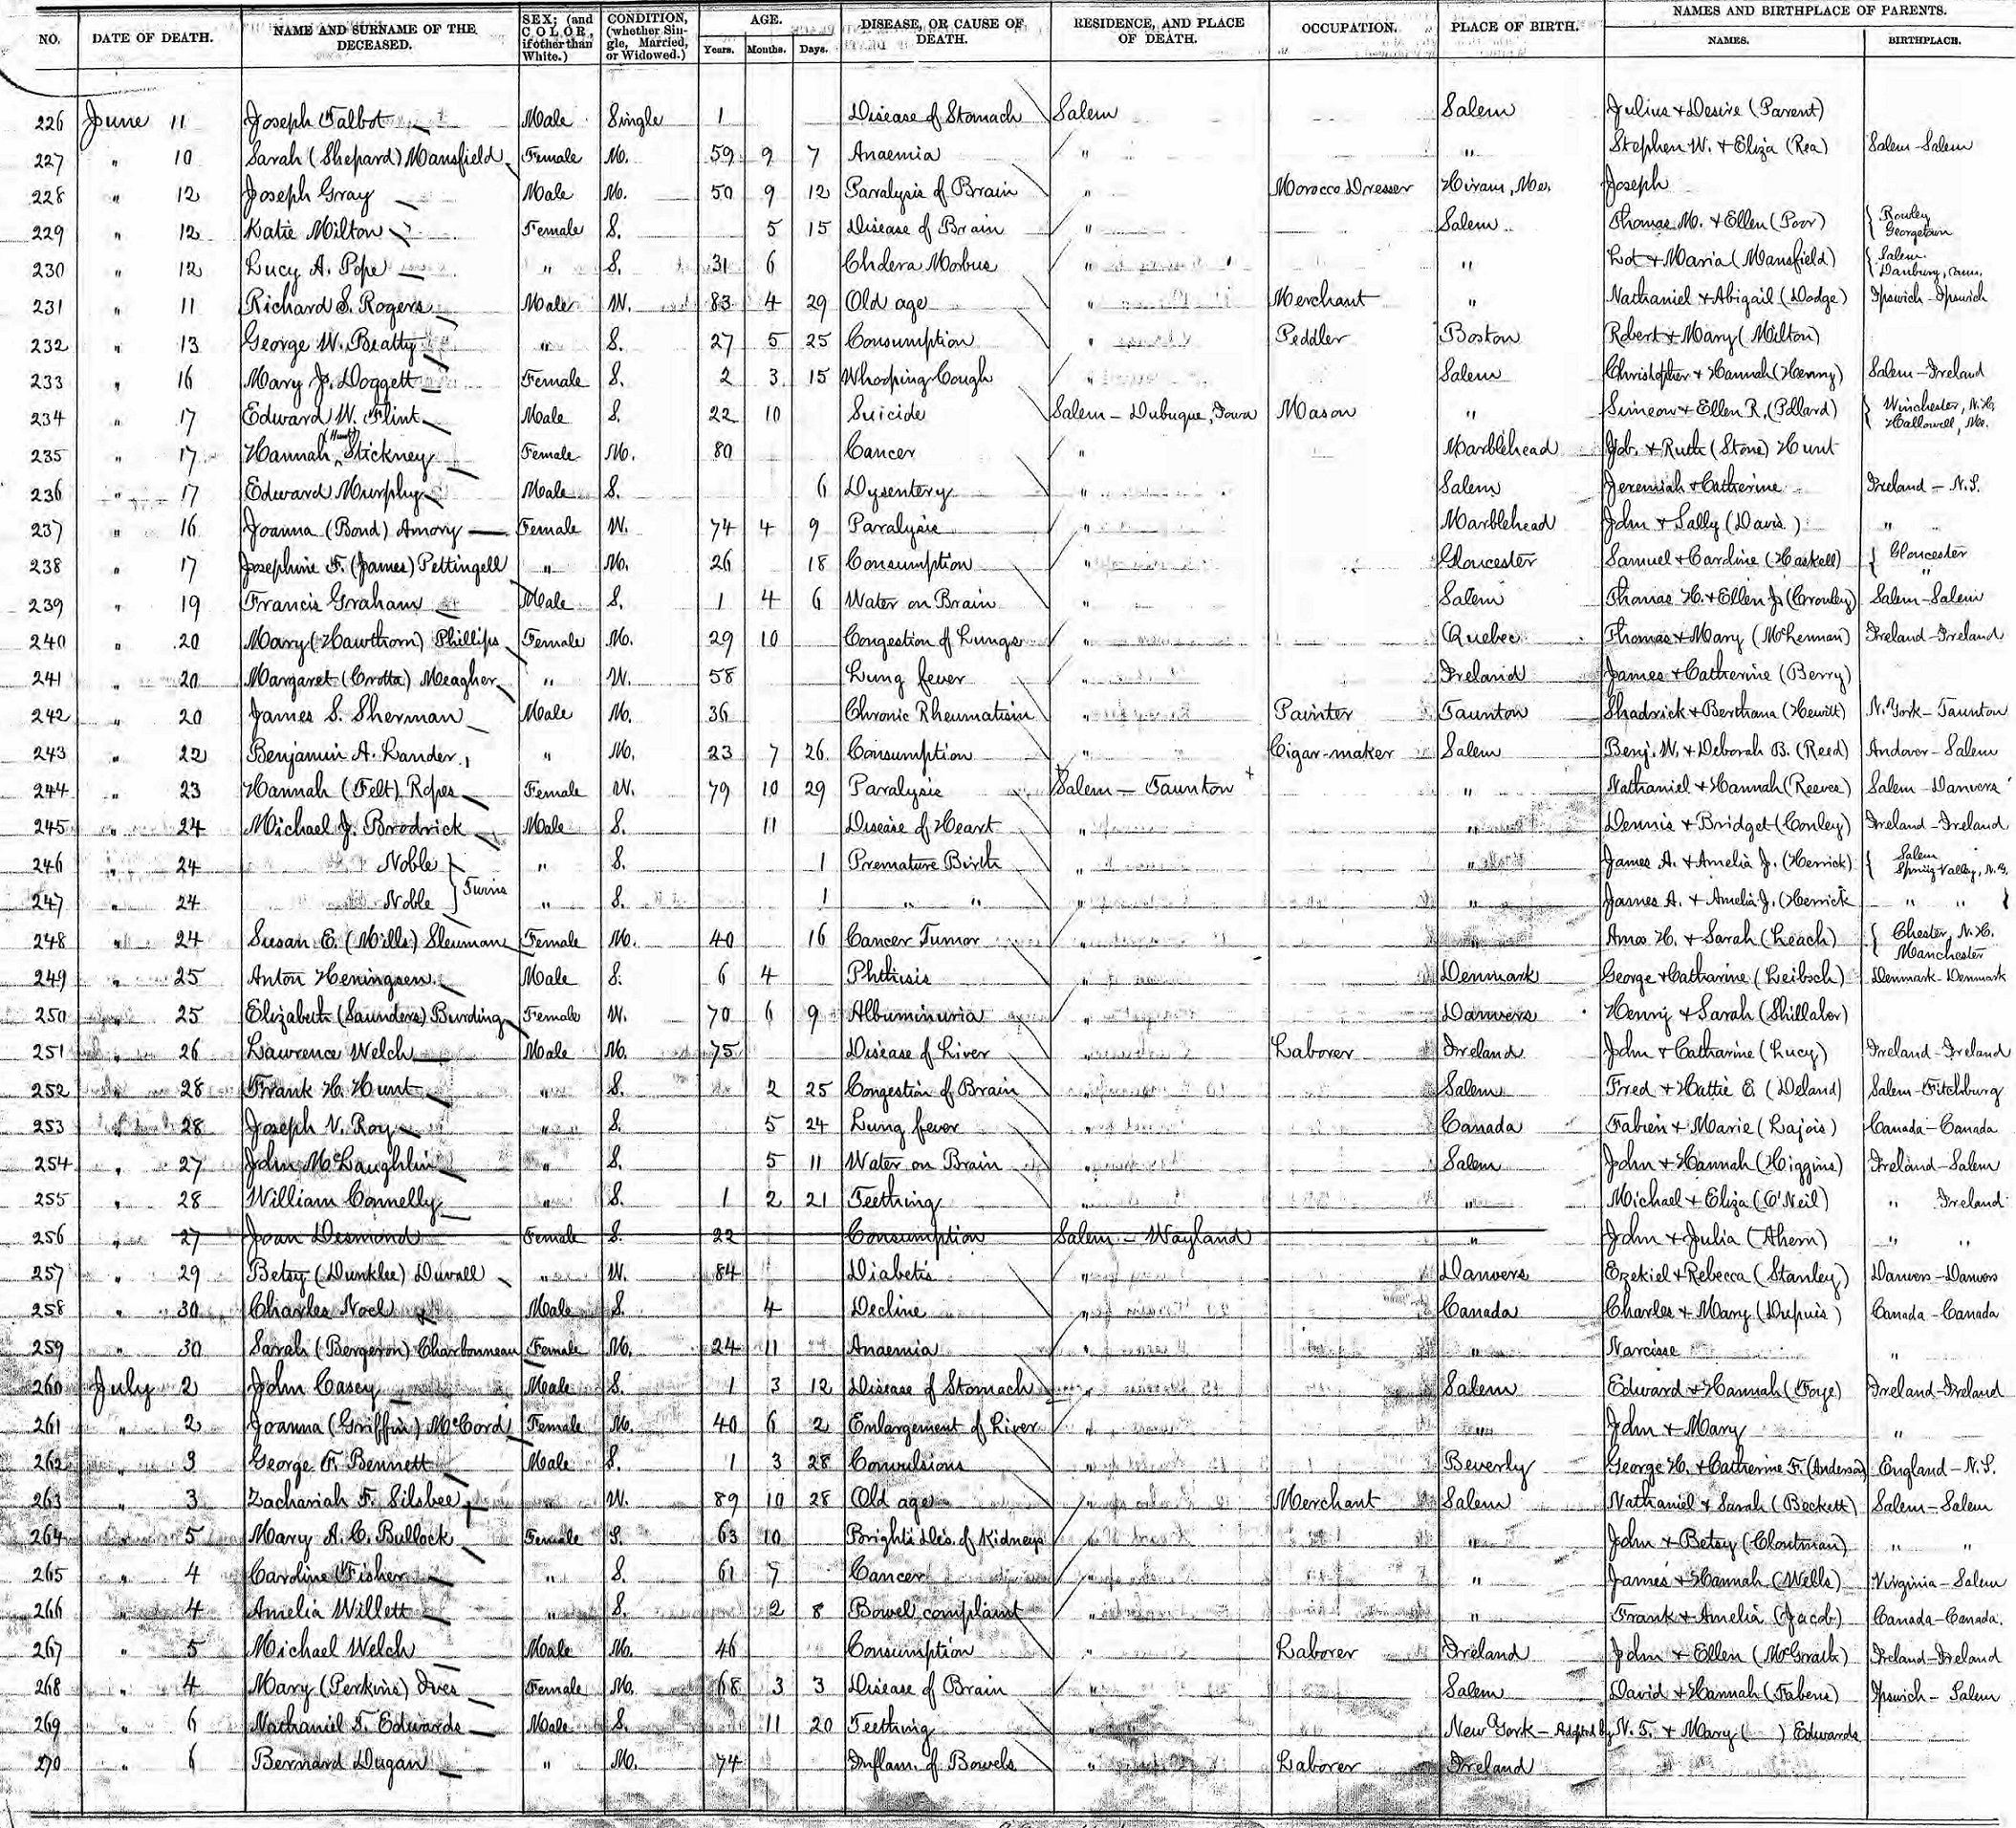 NO. DATE OF DEATH. NAME AND SURNAME OF THE DECEASED. SEX; (and COLOR, if other than White.) CONDITION, (whether Single, Married, or Widowed.) AGE. Years. Months. Days. DISEASE, OR CAUSE OF DEATH. RESIDENCE, AND PLACE OF DEATH. OCCUPATION. PLACE OF BIRTH. NAMES AND BIRTHPLACE OF PARENTS. NAMES. BIRTHPLACE.
226 June 11 Joseph Talbot Male Single 1 Disease of Stomach Salem Salem Julius + Desire (Parent)
227 " 10 Sarah (Shepard) Mansfield Female M. 59 9 7 Anaemia " " Stephen W. + Eliza (Rea) Salem-Salem
228 " 12 Joseph Gray Male M. 50 9 12 Paralysis of Brain " Morocco Dresser Hiram, Me. Joseph
229 " 12 Katie Milton Female S. 5 15 Disease of Brain " Salem Thomas M. + Ellen (Poor) { Rowley Georgetown
230 " 12 Lucy A. Pope " S. 31 6 Cholera Morbus " " Lot + Maria (Mansfield) { Salem Danbury, Conn.
231 " 11 Richard S. Rogers Male W. 83 4 29 Old age " Merchant " Nathaniel + Abigail (Dodge) Ipswich-Ipswich
232 " 13 George W. Beatty " S. 27 5 25 Consumption " Peddler Boston Robert + Mary (Milton)
233 " 16 Mary J. Doggett Female S. 2 3 15 Whooping Cough " Salem Christopher + Hannah (Henry) Salem-Ireland
234 " 17 Edward W. Flint Male S. 22 10 Suicide Salem - Dubuque, Iowa Mason " Simeon + Ellen R. (Pollard) { Winchester, N.H. Hallowell, Me.
235 " 17 Hannah (Hunt) Stickney Female M. 80 Cancer " Marblehead Job. + Ruth (Stone) Hunt
236 " 17 Edward Murphy Male S. 6 Dysentery " Salem Jeremiah + Catherine Ireland - N.S.
237 " 16 Joanna (Bond) Amory Female W. 74 4 9 Paralysis " Marblehead John + Sally (Davis) " "
238 " 17 Josephine F. (James) Pettingell " M. 26 18 Consumption " Gloucester Samuel + Caroline (Haskell) { Gloucester "
239 " 19 Francis Graham Male S. 1 4 6 Water on Brain " Salem Thomas H. + Ellen J. (Crowley) Salem-Salem
240 " 20 Mary (Hawthorn) Phillips Female M. 29 10 Congestion of Lungs " Quebec Thomas + Mary (McKennan) Ireland-Ireland
241 " 20 Margaret (Crotta) Meagher " W. 58 Lung fever " Ireland James + Catherine (Berry)
242 " 20 James S. Sherman Male M. 36 Chronic Rheumatism " Painter Taunton Shadrick + Berthana (Hewitt) N. York-Taunton
243 " 22 Benjamin A. Lander " M. 23 7 26 Consumption " Cigar-maker Salem Benj. W. + Deborah B. (Reed) Andover-Salem
244 " 23 Hannah (Felt) Ropes Female W. 79 10 29 Paralysis Salem - Taunton + " Nathaniel + Hannah (Reeves) Salem-Danvers
245 " 24 Michael J. Brodrick Male S. 11 Disease of Heart " " Dennis + Bridget (Conley) Ireland-Ireland
246 " 24 Noble } Twins " S. 1 Premature Birth " " James A. + Amelia J. (Herrick) { Salem Spring Valley, N.Y.
247 " 24 Noble " S. 1 " " " " James A. + Amelia J. (Herrick " " }
248 " 24 Susan E. (Mills) Sleuman Female M. 40 16 Cancer Tumor " " Amos H. + Sarah (Leach) { Chester, N.H. Manchester
249 " 25 Anton Heningsen Male S. 6 4 Phthisis " Denmark George + Catharine (Leibsch) Denmark-Denmark
250 " 25 Elizabeth (Saunders) Burding Female W. 70 6 9 Albuminuria " Danvers Henry + Sarah (Shillaber)
251 " 26 Lawrence Welch Male M. 75 Disease of Liver " Laborer Ireland John + Catharine (Lucy) Ireland-Ireland
252 " 28 Frank H. Hunt " S. 2 25 Congestion of Brain " Salem Fred + Hattie E. (Deland) Salem-Fitchburg
253 " 28 Joseph N. Roy " S. 5 24 Lung fever " Canada Fabien + Marie (Lajois) Canada-Canada
254 " 27 John McLaughlin " S. 5 11 Water on Brain " Salem John + Hannah (Higgins) Ireland-Salem
255 " 28 William Connelly " S. 1 2 21 Teething " " Michael + Eliza (O'Neil) " Ireland
256 " 27 Joan Desmond Female S. 22 Consumption Salem - Wayland " John + Julia (Ahern) " "
257 " 29 Betsy (Dunklee) Duvall " W. 84 Diabetis " Danvers Ezekiel + Rebecca (Stanley) Danvers-Danvers
258 " 30 Charles Noel Male S. 4 Decline " Canada Charles + Mary (Dupuis) Canada-Canada
259 " 30 Sarah (Bergeron) Charbonneau Female M. 24 11 Anaemia " " Narcisse "
260 July 2 John Casey Male S. 1 3 12 Disease of Stomach " Salem Edward + Hannah (Foye) Ireland-Ireland
261 " 2 Joanna (Griffin) McCord Female M. 40 6 2 Enlargement of Liver " " John + Mary "
262 " 3 George F. Bennett Male S. 1 3 28 Convulsions " Beverly George H. + Catherine F. (Anderson) England-N.S.
263 " 3 Zachariah F. Silsbee " W. 89 10 28 Old age " Merchant Salem Nathaniel + Sarah (Beckett) Salem-Salem
264 " 5 Mary A. C. Bullock Female S. 63 10 Bright's Dis. of Kidneys " " John + Betsy (Cloutman) " "
265 " 4 Caroline Fisher " S. 61 7 Cancer " " James + Hannah (Wells) Virginia-Salem
266 " 4 Amelia Willett " S. 2 8 Bowel complaint " " Frank + Amelia (Jacob) Canada-Canada.
267 " 5 Michael Welch Male M. 46 Consumption " Laborer Ireland John + Ellen (McGrath) Ireland-Ireland
268 " 4 Mary (Perkins) Ives Female M. 68 3 3 Disease of Brain " Salem David + Hannah (Fabens) Ipswich-Salem
269 " 6 Nathaniel T. Edwards Male S. 11 20 Teething " New York - Adopted by N. T. + Mary ( ) Edwards
270 " 6 Bernard Dugan " M. 74 Inflam. of Bowels " Laborer Ireland